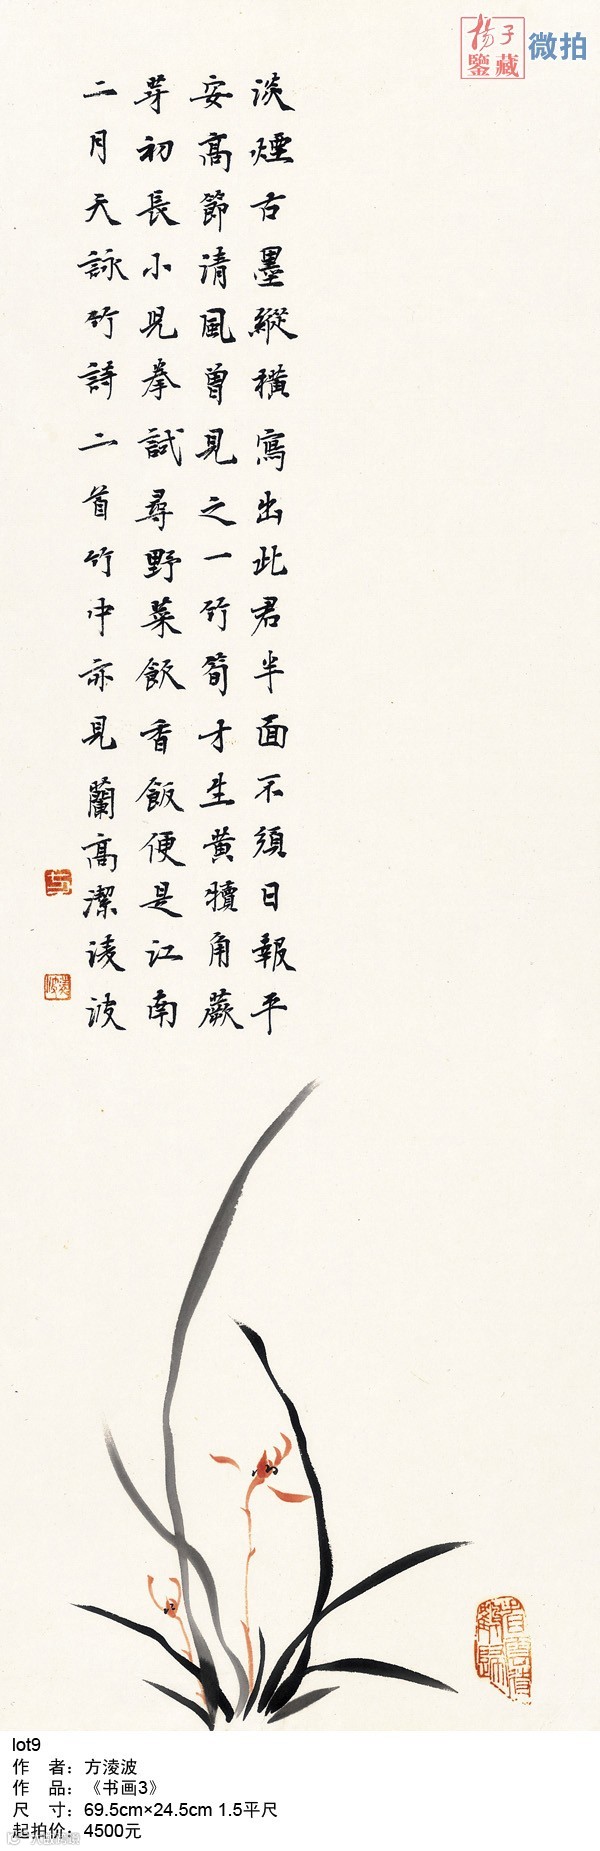 揚子
鑒藏
微拍
淡煙古墨縱橫寫出此君半面不須日報平
安高節清風曾見之一竹筍才生黃犢角蕨
芽初長小兒拳試尋野菜飯香飯便是江南
二月天詠竹詩二首竹中亦見蘭高潔淩波
lot9
作　者：方淩波
作　品：《书画3》
尺　寸：69.5cm×24.5cm 1.5平尺
起拍价：4500元